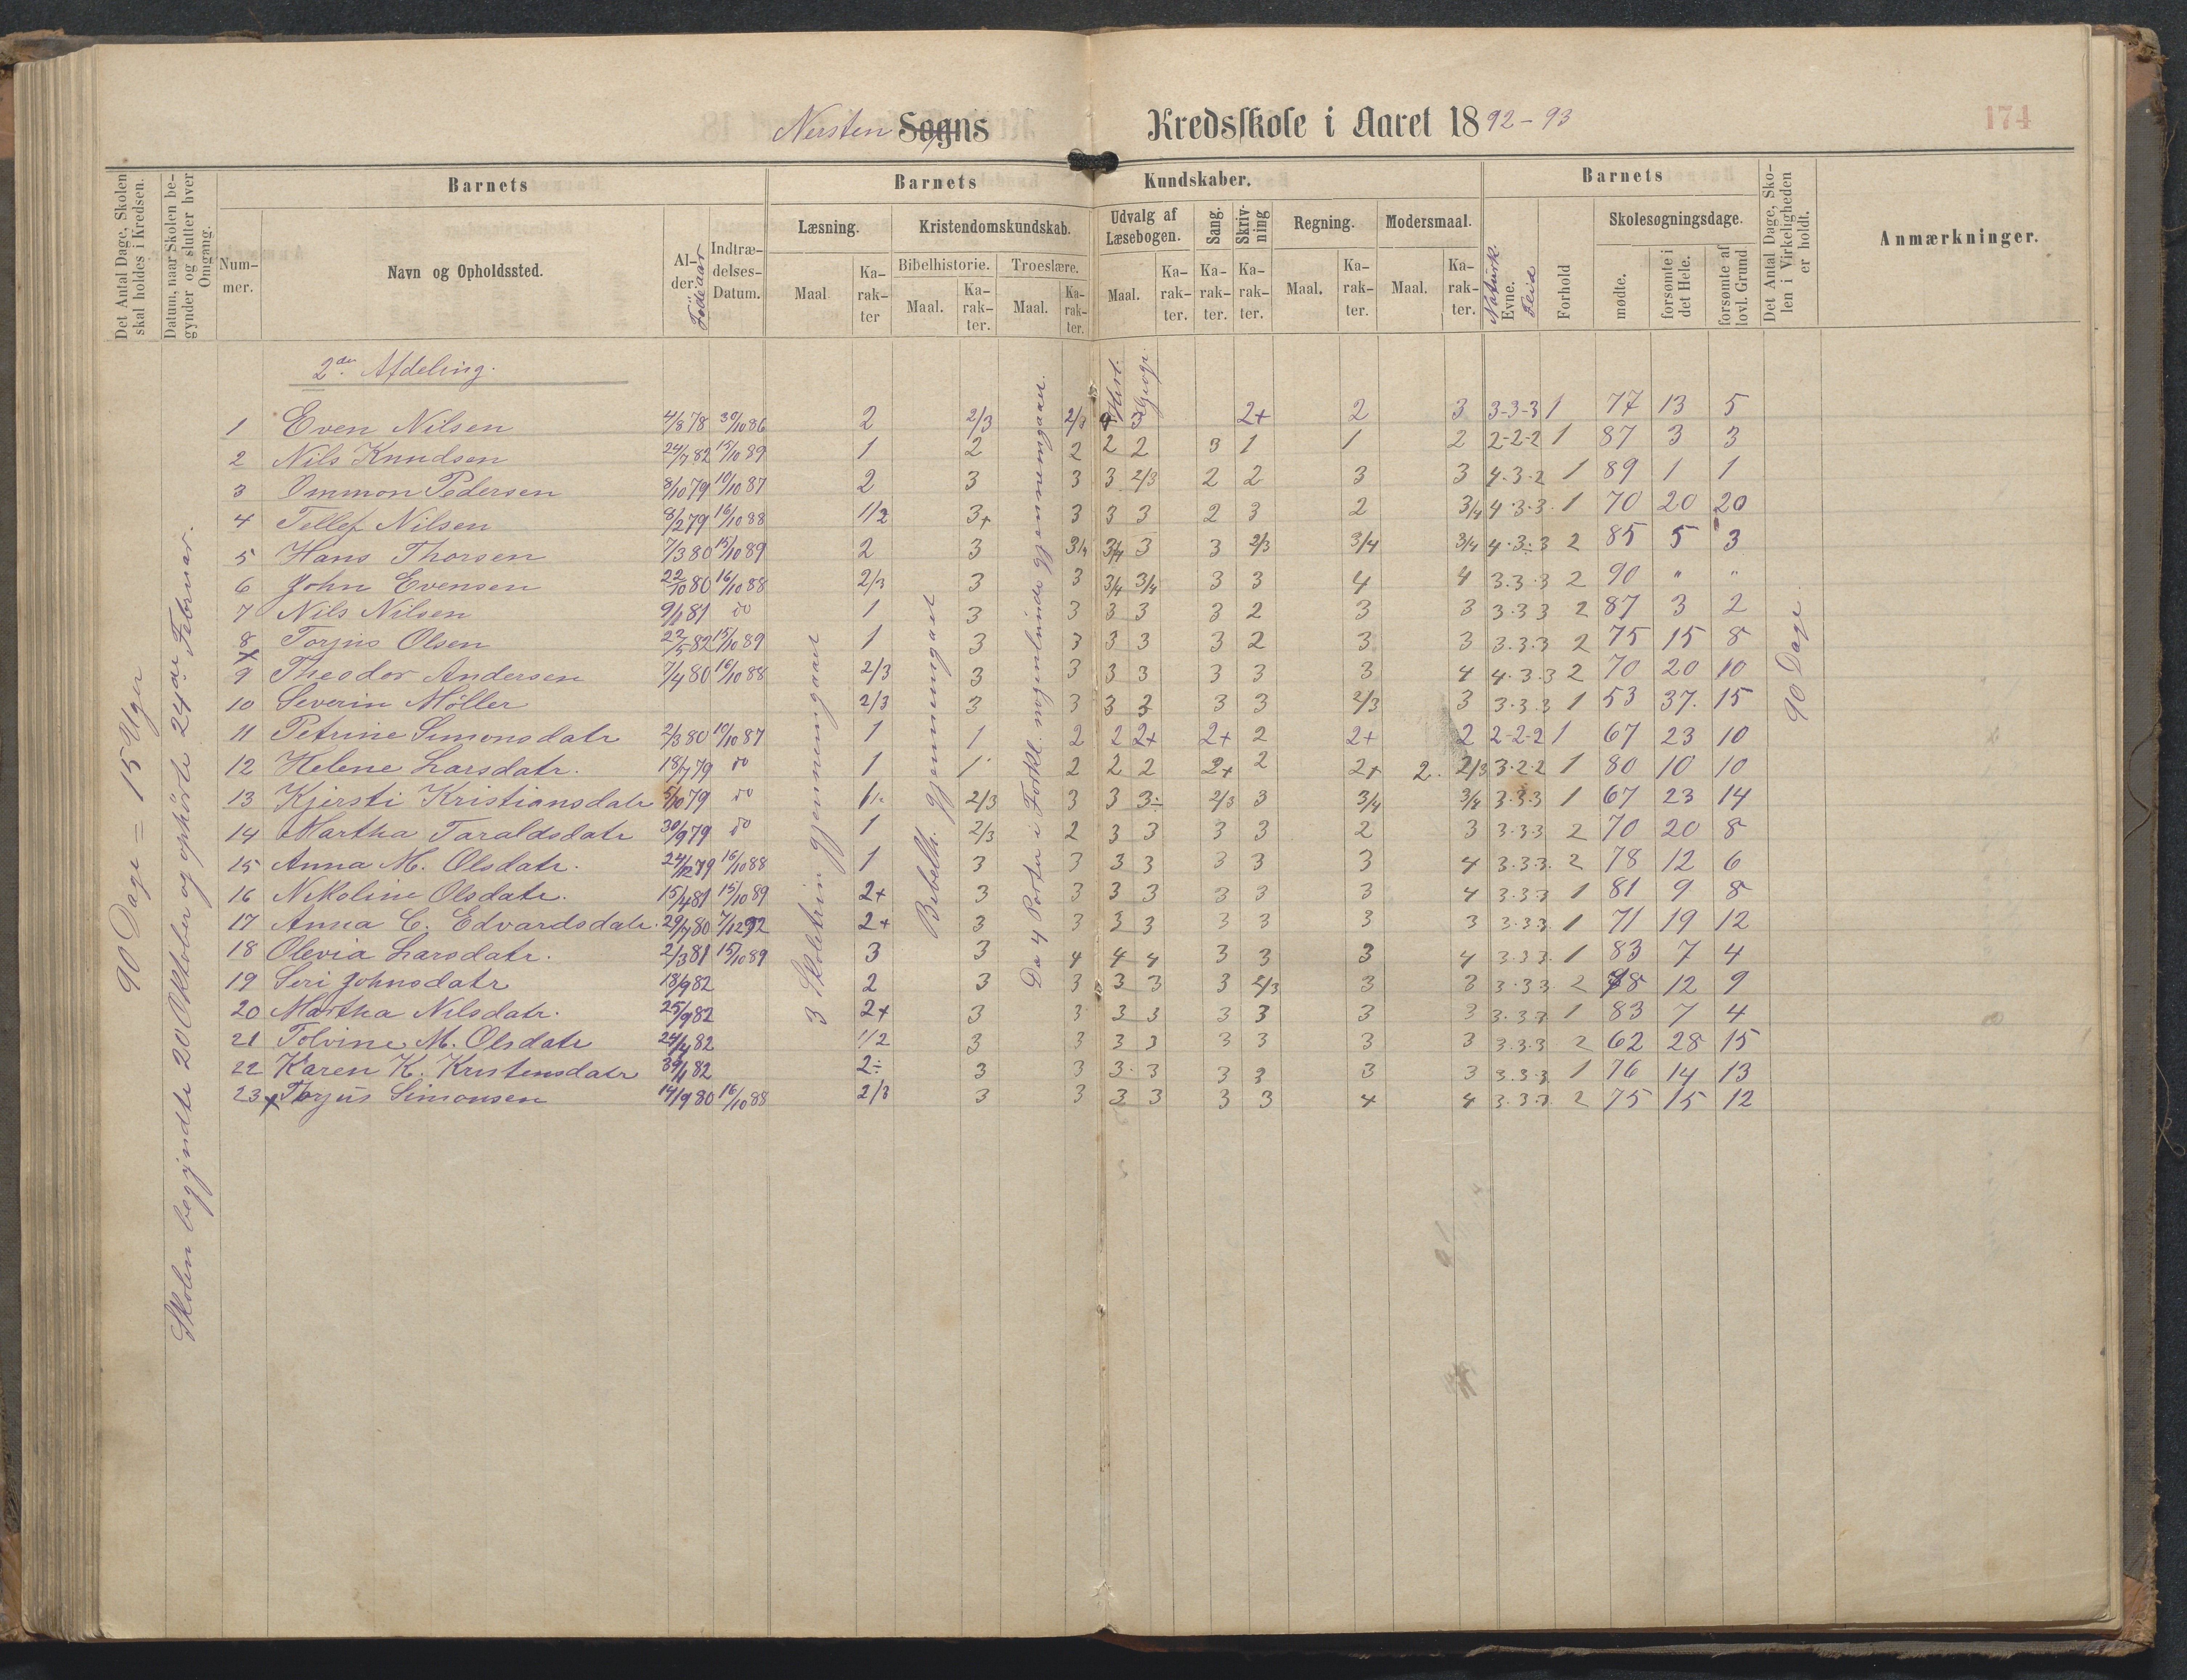 Nersten Sogns Kredsskole i Aaret 1892-93
174
Det Antal Dage, Skolen skal holdes i Kredsen.
Datum, naar Skolen begynder og slutter hver Omgang.
Barnets
Nummer.
Navn og Opholdssted.
Alder. Födeaar
Indtrædelses-Datum.
Barnets Kundskaber.
Læsning.
Maal
Karakter
Kristendomskundskab.
Bibelhistorie.
Maal.
Karakter.
Troeslære.
Maal.
Karakter.
Udvalg af Læsebogen.
Maal.
Karakter.
Sang.
Karakter.
Skrivning
Karakter.
Regning.
Maal.
Karakter.
Modersmaal.
Maal.
Karakter.
Barnets
Naturk.
Evne.
Flid
Forhold
Skolesøgningsdage.
mødte.
forsømte i det Hele.
forsømte af lovl. Grund
Det Antal Dage, Skolen i Virkeligheden er holdt.
Anmærkninger.
90 Dage = 15 Uger
Skolen begyndte 20 Oktober og ophörte 24de Februar.
3 Skoletrin gjennemgaaet
Bibelh. gjennemgaaet
De 4 Parter i Forkl. nogenlunde gjennemgaaet.
Hist.
Geogr.
90 Dage.
2den Afdeling.
1 Even Nilsen 4/8 78 30/10 86 2 2/3 2/3 3 2+ 2 3 3-3-3 1 77 13 5
2 Nils Knudsen 24/7 82 15/10 89 1 2 2 2 2 3 1 1 2 2-2-2 1 87 3 3
3 Ommon Pedersen 3/10 79 10/10 87 2 3 3 3 2/3 2 2 3 3 4.3.2 1 89 1 1
4 Tellef Nilsen 8/2 79 16/10 88 1/2 3+ 3 3 3 2 3 2 3/4 4.3.3. 1 70 20 20
5 Hans Thorsen 7/3 80 15/10 89 2 3 3/4 3/4 3 3 2/3 3/4 3/4 4.3÷3 2 85 5 3
6 John Evensen 22/10 80 16/10 88 2/3 3 3 3/4 3/4 3 3 4 4 3.3.3 2 90 " "
7 Nils Nilsen 9/1 81 do 1 3 3 3 3 3 2 3 3 3.3.3 2 87 3 2
8 Torjus Olsen 22/5 82 15/10 89 1 3 3 3 3 3 2 3 3 3.3.3 2 75 15 8
9 Theodor Andersen 7/4 80 16/10 88 2/3 3 3 3 3 3 3 3 4 4.3.3 2 70 20 10
10 Severin Møller 2/3 3 3 3 3 3 3 2/3 3 3.3.3 1 53 37. 15
11 Petrine Simonsdatr 2/3 80 10/10 87 1 1 2 2 2+ 2+ 2 2+ 2 2-2-2 1 67 23 10
12 Helene Larsdatr. 18/7 79 do 1 1 2 2 2 2+ 2 2+ 2. 2/3 3-2-2 1 80 10 10
13 Kjersti Kristiansdatr 5/10 79 do 1/2 2/3 3 3 3÷ 2/3 3 3/4 3/4 3-3-3 1 67 23 14
14 Martha Taraldsdatr 30/9 79 do 1 2/3 2 3 3 3 3 2 3 3.3.3 2 70 20 8
15 Anna M. Olsdatr. 24/12 79 16/10 88 1 3 3 3 3 3 3 3 4 3.3.3. 2 78 12 6
16 Nikoline Olsdatr. 15/4 81 15/10 89 2+ 3 3 3 3 3 3 3 4 3.3.3 1 81 9 8
17 Anna C. Edvardsdatr. 29/7 80 7/12 92 2+ 3 3 3 3 3 3 3 3 3.3.3 1 71 19 12
18 Olevia Larsdatr. 2/3 81 15/10 89 3 3 4 4 4 3 3 3 4 3.3.3. 1 83 7 4
19 Seri Johnsdatr 18/9 82 2 3 3 3 3 3 2/3 3 3 3.3.3 2 78 12 9
20 Martha Nilsdatr. 25/9 82 2+ 3 3 3 3 3 3 3 3 3.3.3 1 83 7 4
21 Tolvine M. Olsdatr 24/4 82 1/2 3 3 3 3 3 3 3 3 3.3.3 2 62 28 15
22 Karen K. Kristensdatr 30/11 82 2÷ 3 3 3. 3 3 3 3 3 3.3.3 1 76 14 13
23 x Torjus Simonsen 14/9 80 16/10 88 2/3 3 3 3 3 3 3 4 4 3.3.3. 2 75 15 12